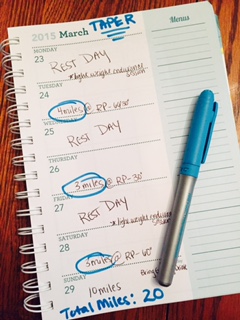 TAPER
2015 March
Menus
MONDAY
23
REST DAY
*light weight endurance
TUESDAY
24
4 miles @ RP-60
WEDNESDAY
25
REST DAY
THURSDAY
26
3 miles @ RP-30
FRIDAY
27
REST DAY
*light weight endurance
SATURDAY
28
3 miles @ RP-60
SUNDAY
29
10 miles
Total Miles: 20